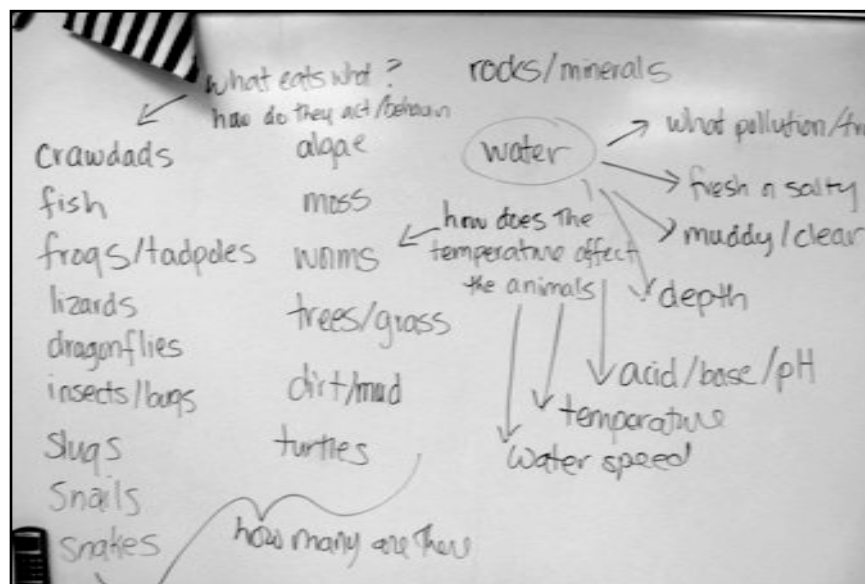 what eats what?
how do they act/behave
crawdads
fish
frogs/tadpoles
lizards
dragonflies
insects/bugs
slugs
snails
snakes
algae
moss
worms
trees/grass
dirt/mud
turtles
how many are there
rocks/minerals
water
what pollution/
fresh or salty
muddy/clear
depth
acid/base/pH
temperature
water speed
how does the
temperature affect
the animals